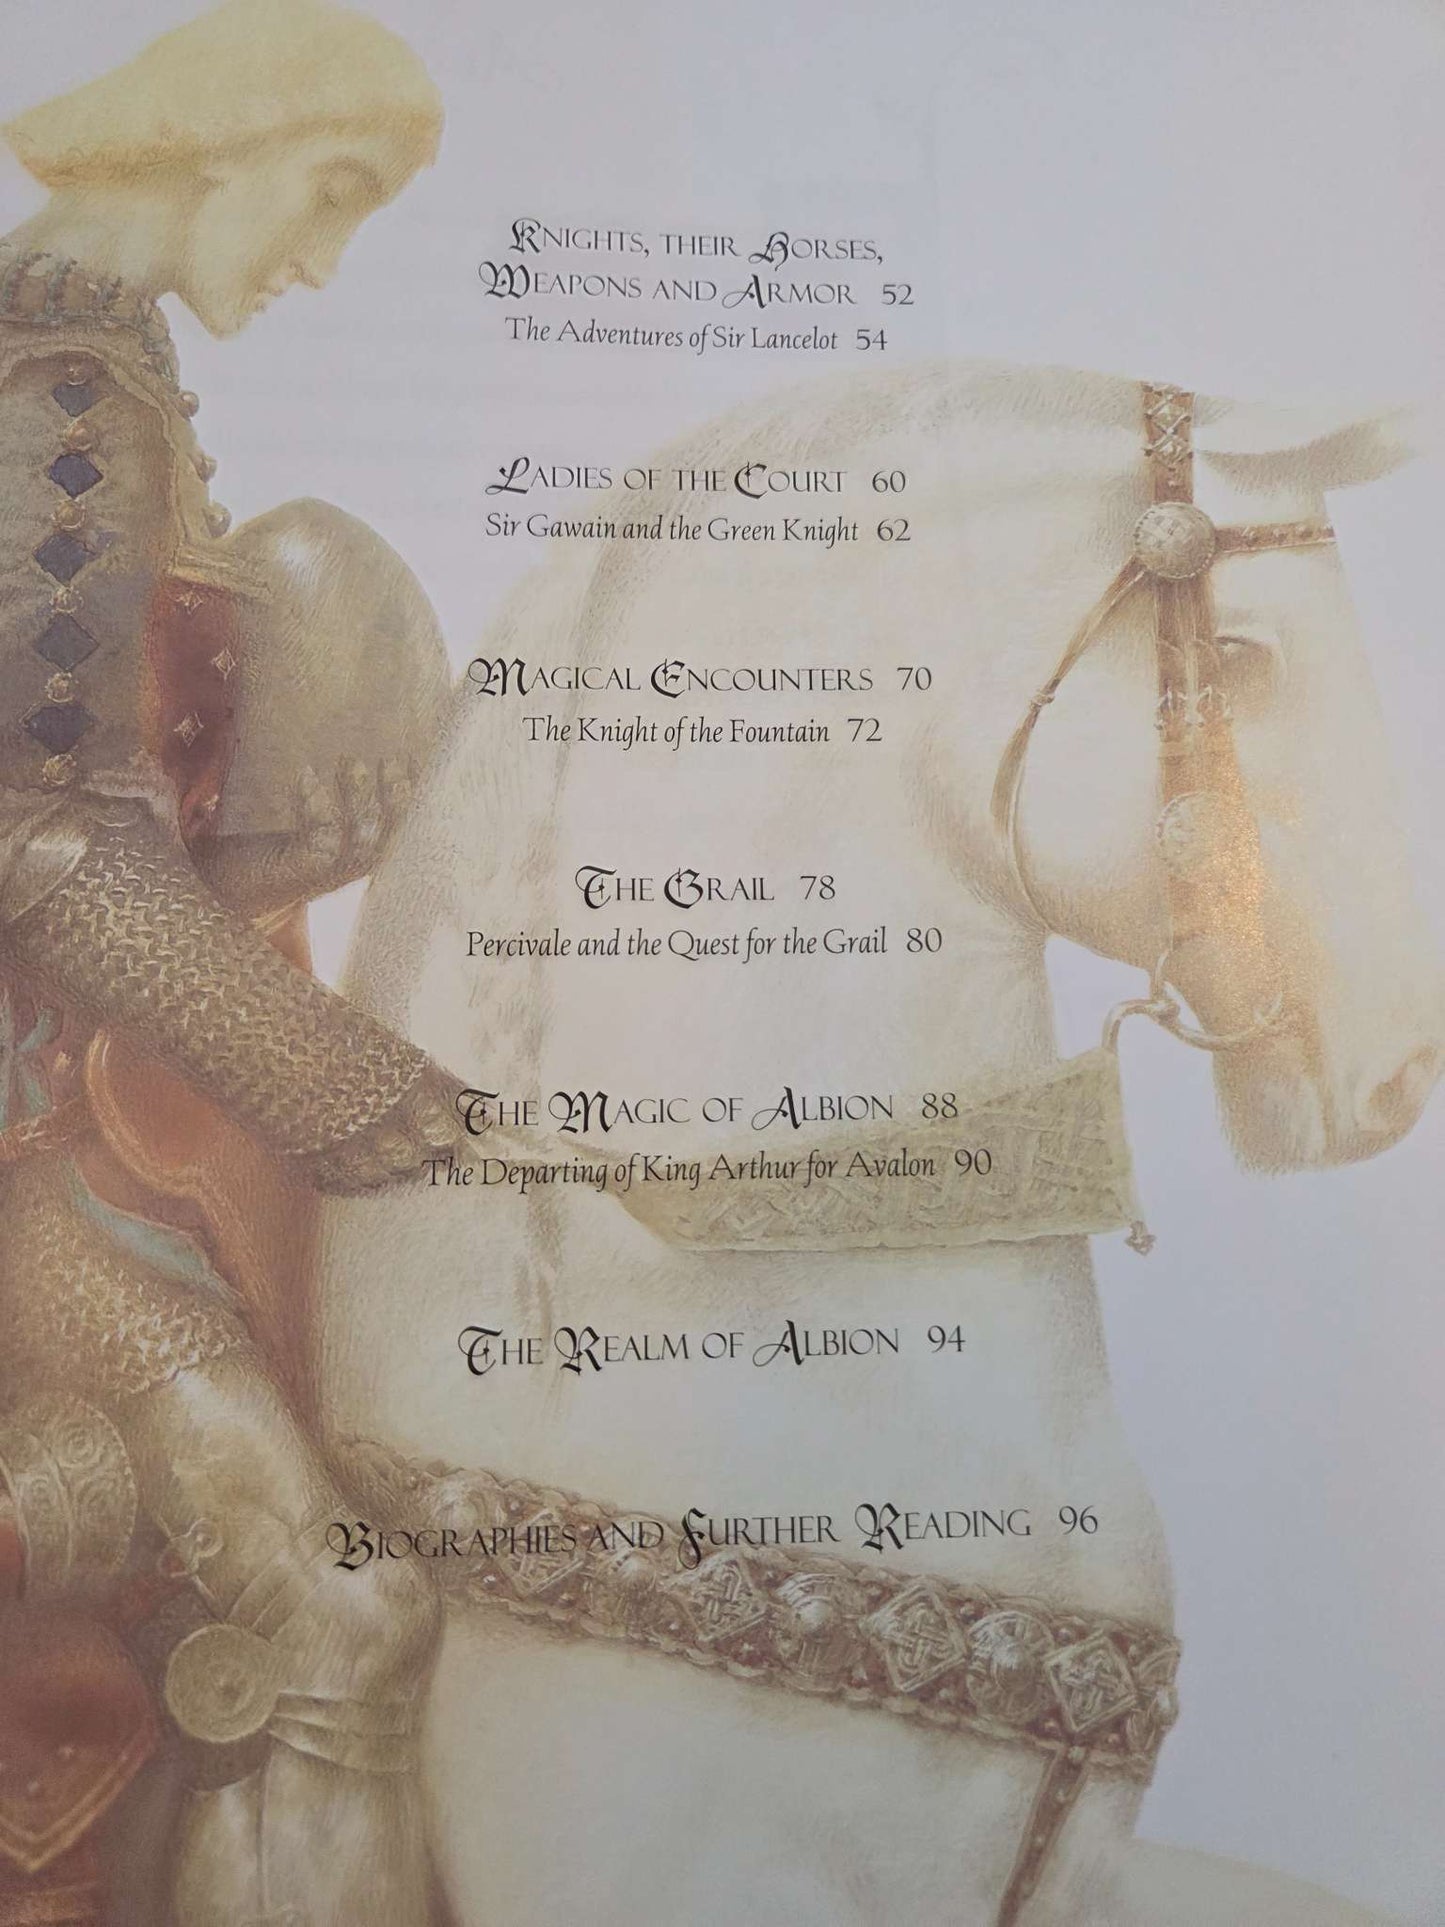 Knights, their Horses,
Weapons and Armor 52
The Adventures of Sir Lancelot 54
Ladies of the Court 60
Sir Gawain and the Green Knight 62
Magical Encounters 70
The Knight of the Fountain 72
The Grail 78
Percivale and the Quest for the Grail 80
The Magic of Albion 88
The Departing of King Arthur for Avalon 90
The Realm of Albion 94
Biographies and Further Reading 96